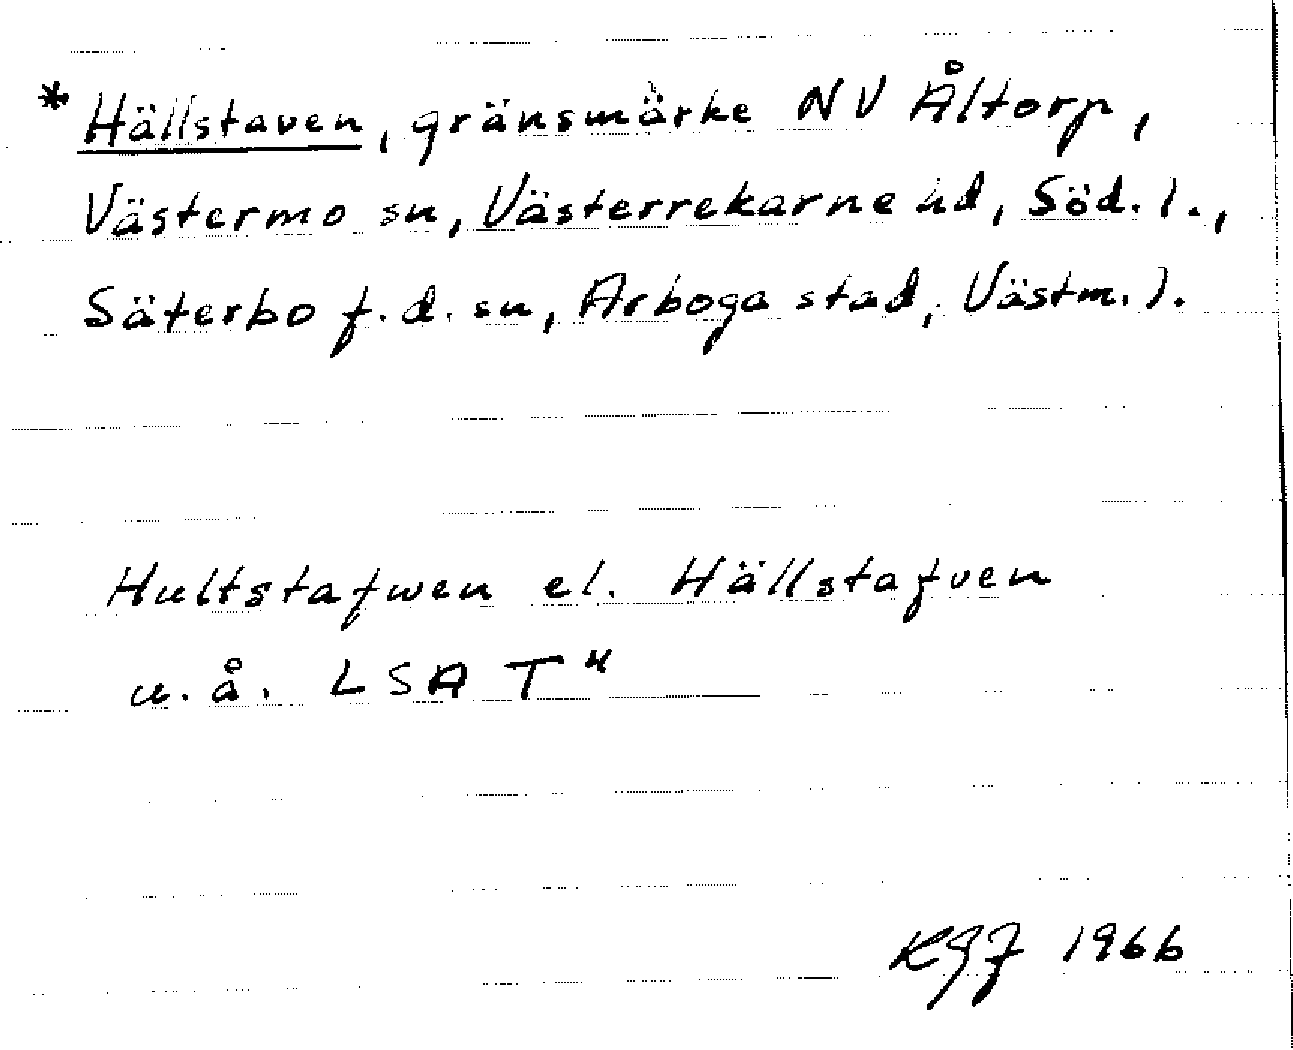 * Hällstaven, gränsmärke NV Åltorp,
Västermo sn, Västerrekarne hd, Söd. l.,
Säterbo f.d. sn, Arboga stad, Västm. l.
Hultstafwen el. Hällstafven
u. å. LSA T"
KGJ 1966